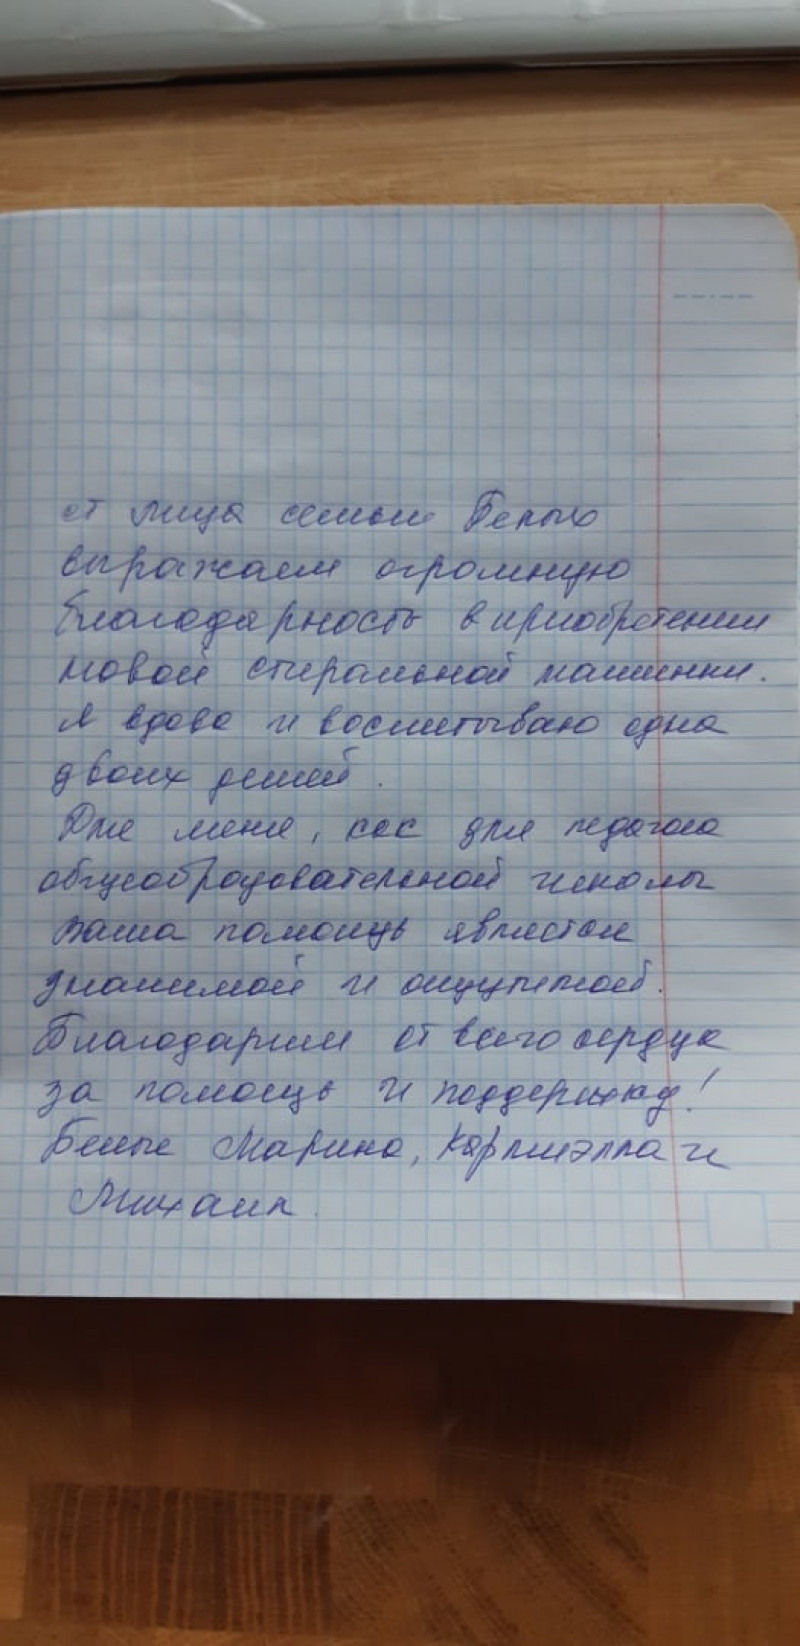 от лица семьи Белых
выражаем огромную
благодарность в приобретении
новой стиральной машинки.
Я вдова и воспитываю одна
двоих детей.
Для меня, как для педагога
общеобразовательной школы
Ваша помощь является
значимой и ощутимой.
Благодарим от всего сердца
за помощь и поддержку!
Белые Марина, Кармиэлла и
Михаил.